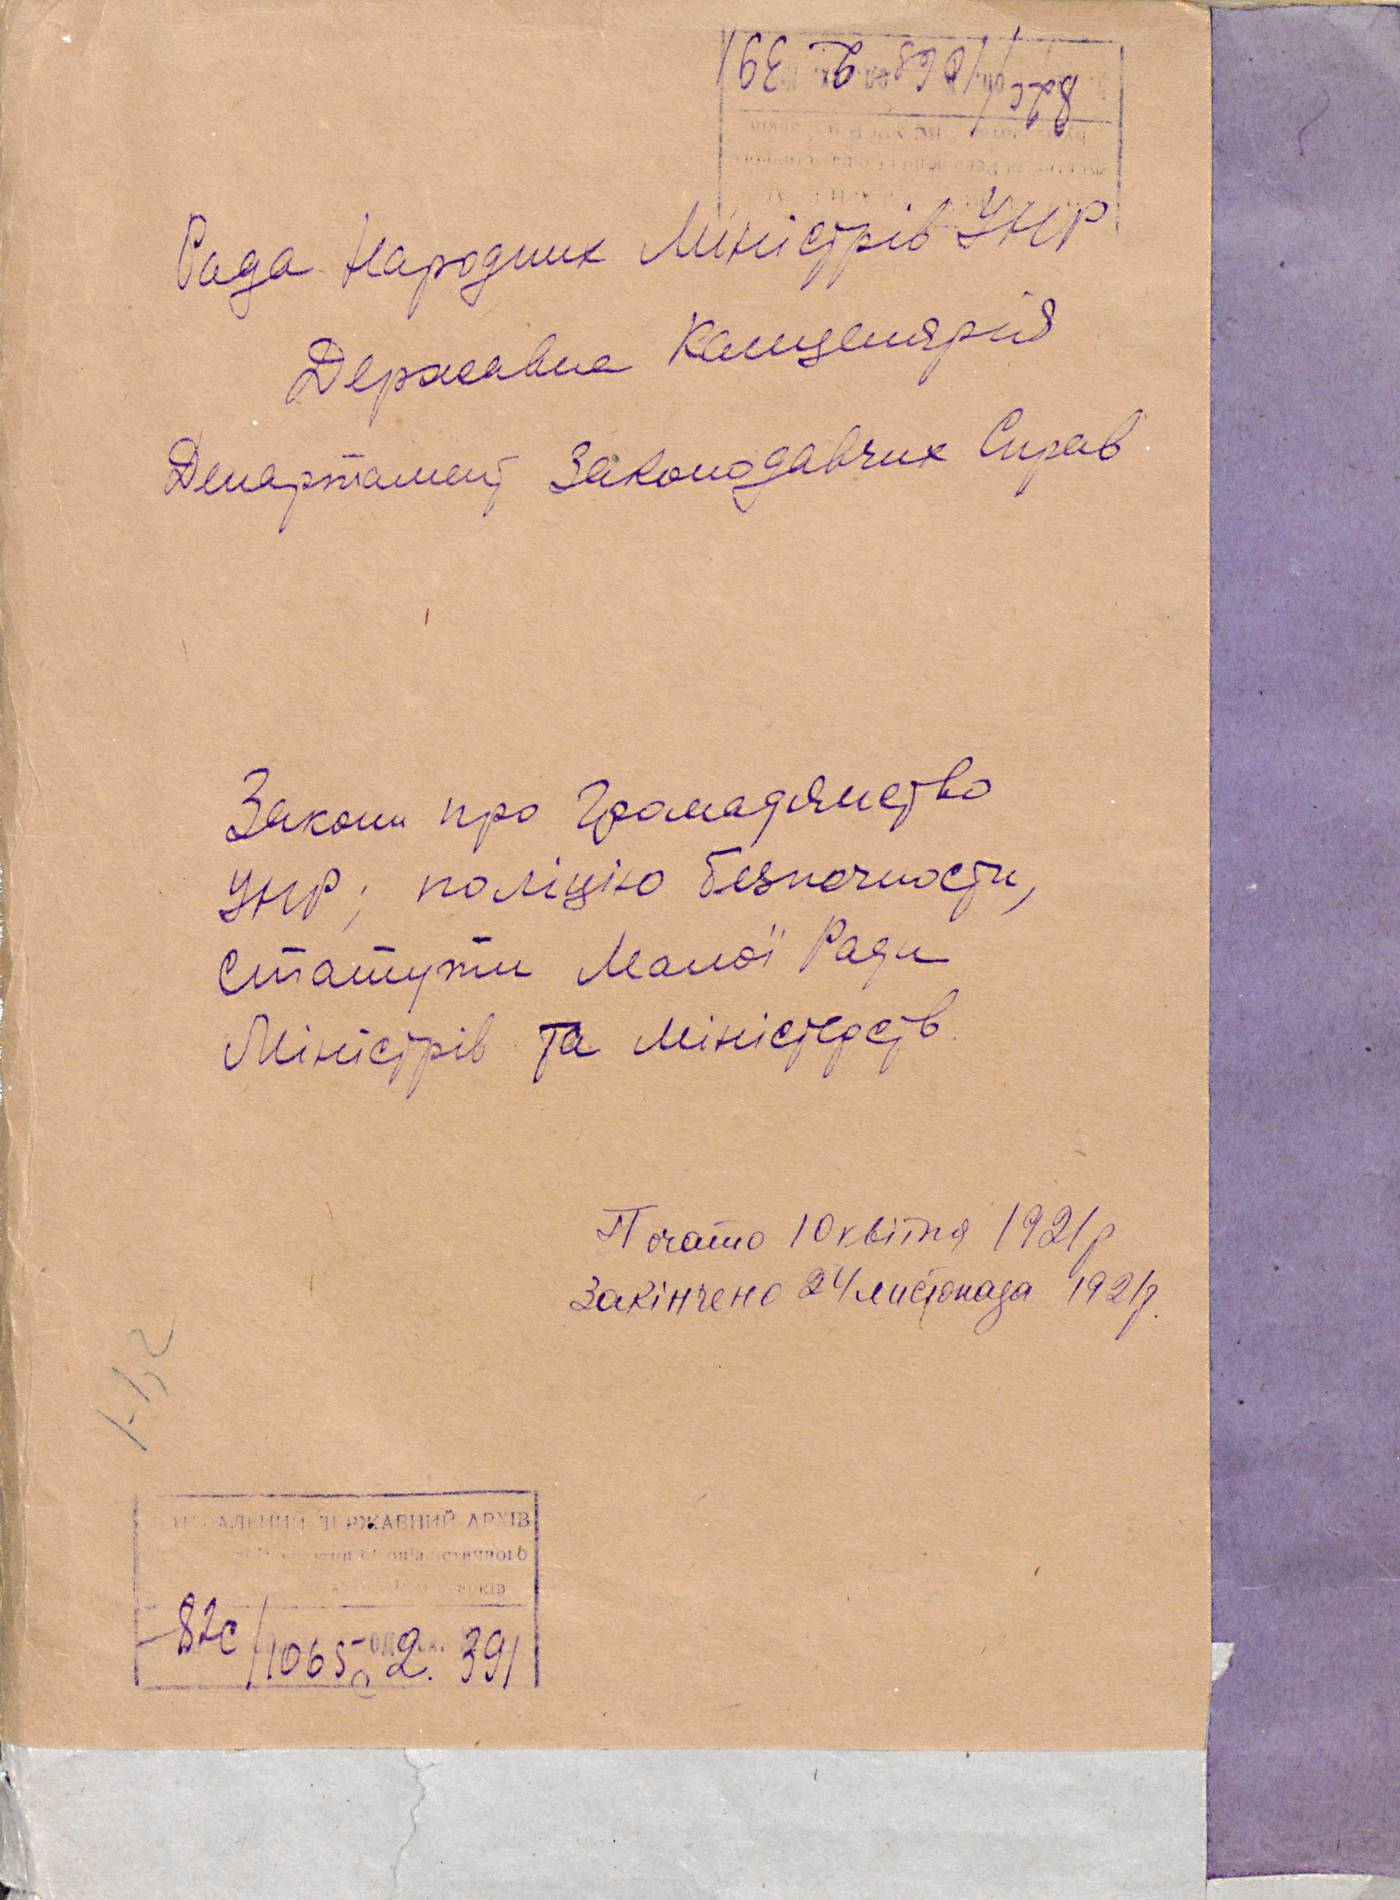 Рада Народних Міністрів УНР
Державна Канцелярія
Департамент Законодавчих Справ
Закони про громадянство
УНР; поліцію безпечности,
статути Малої Ради
Міністрів та міністерств
Почато 10 квітня 1921 р
Закінчено 24 листопада 1921 р.
ДЕРЖАВНИЙ АРХІВ
82с/1065 2. 391